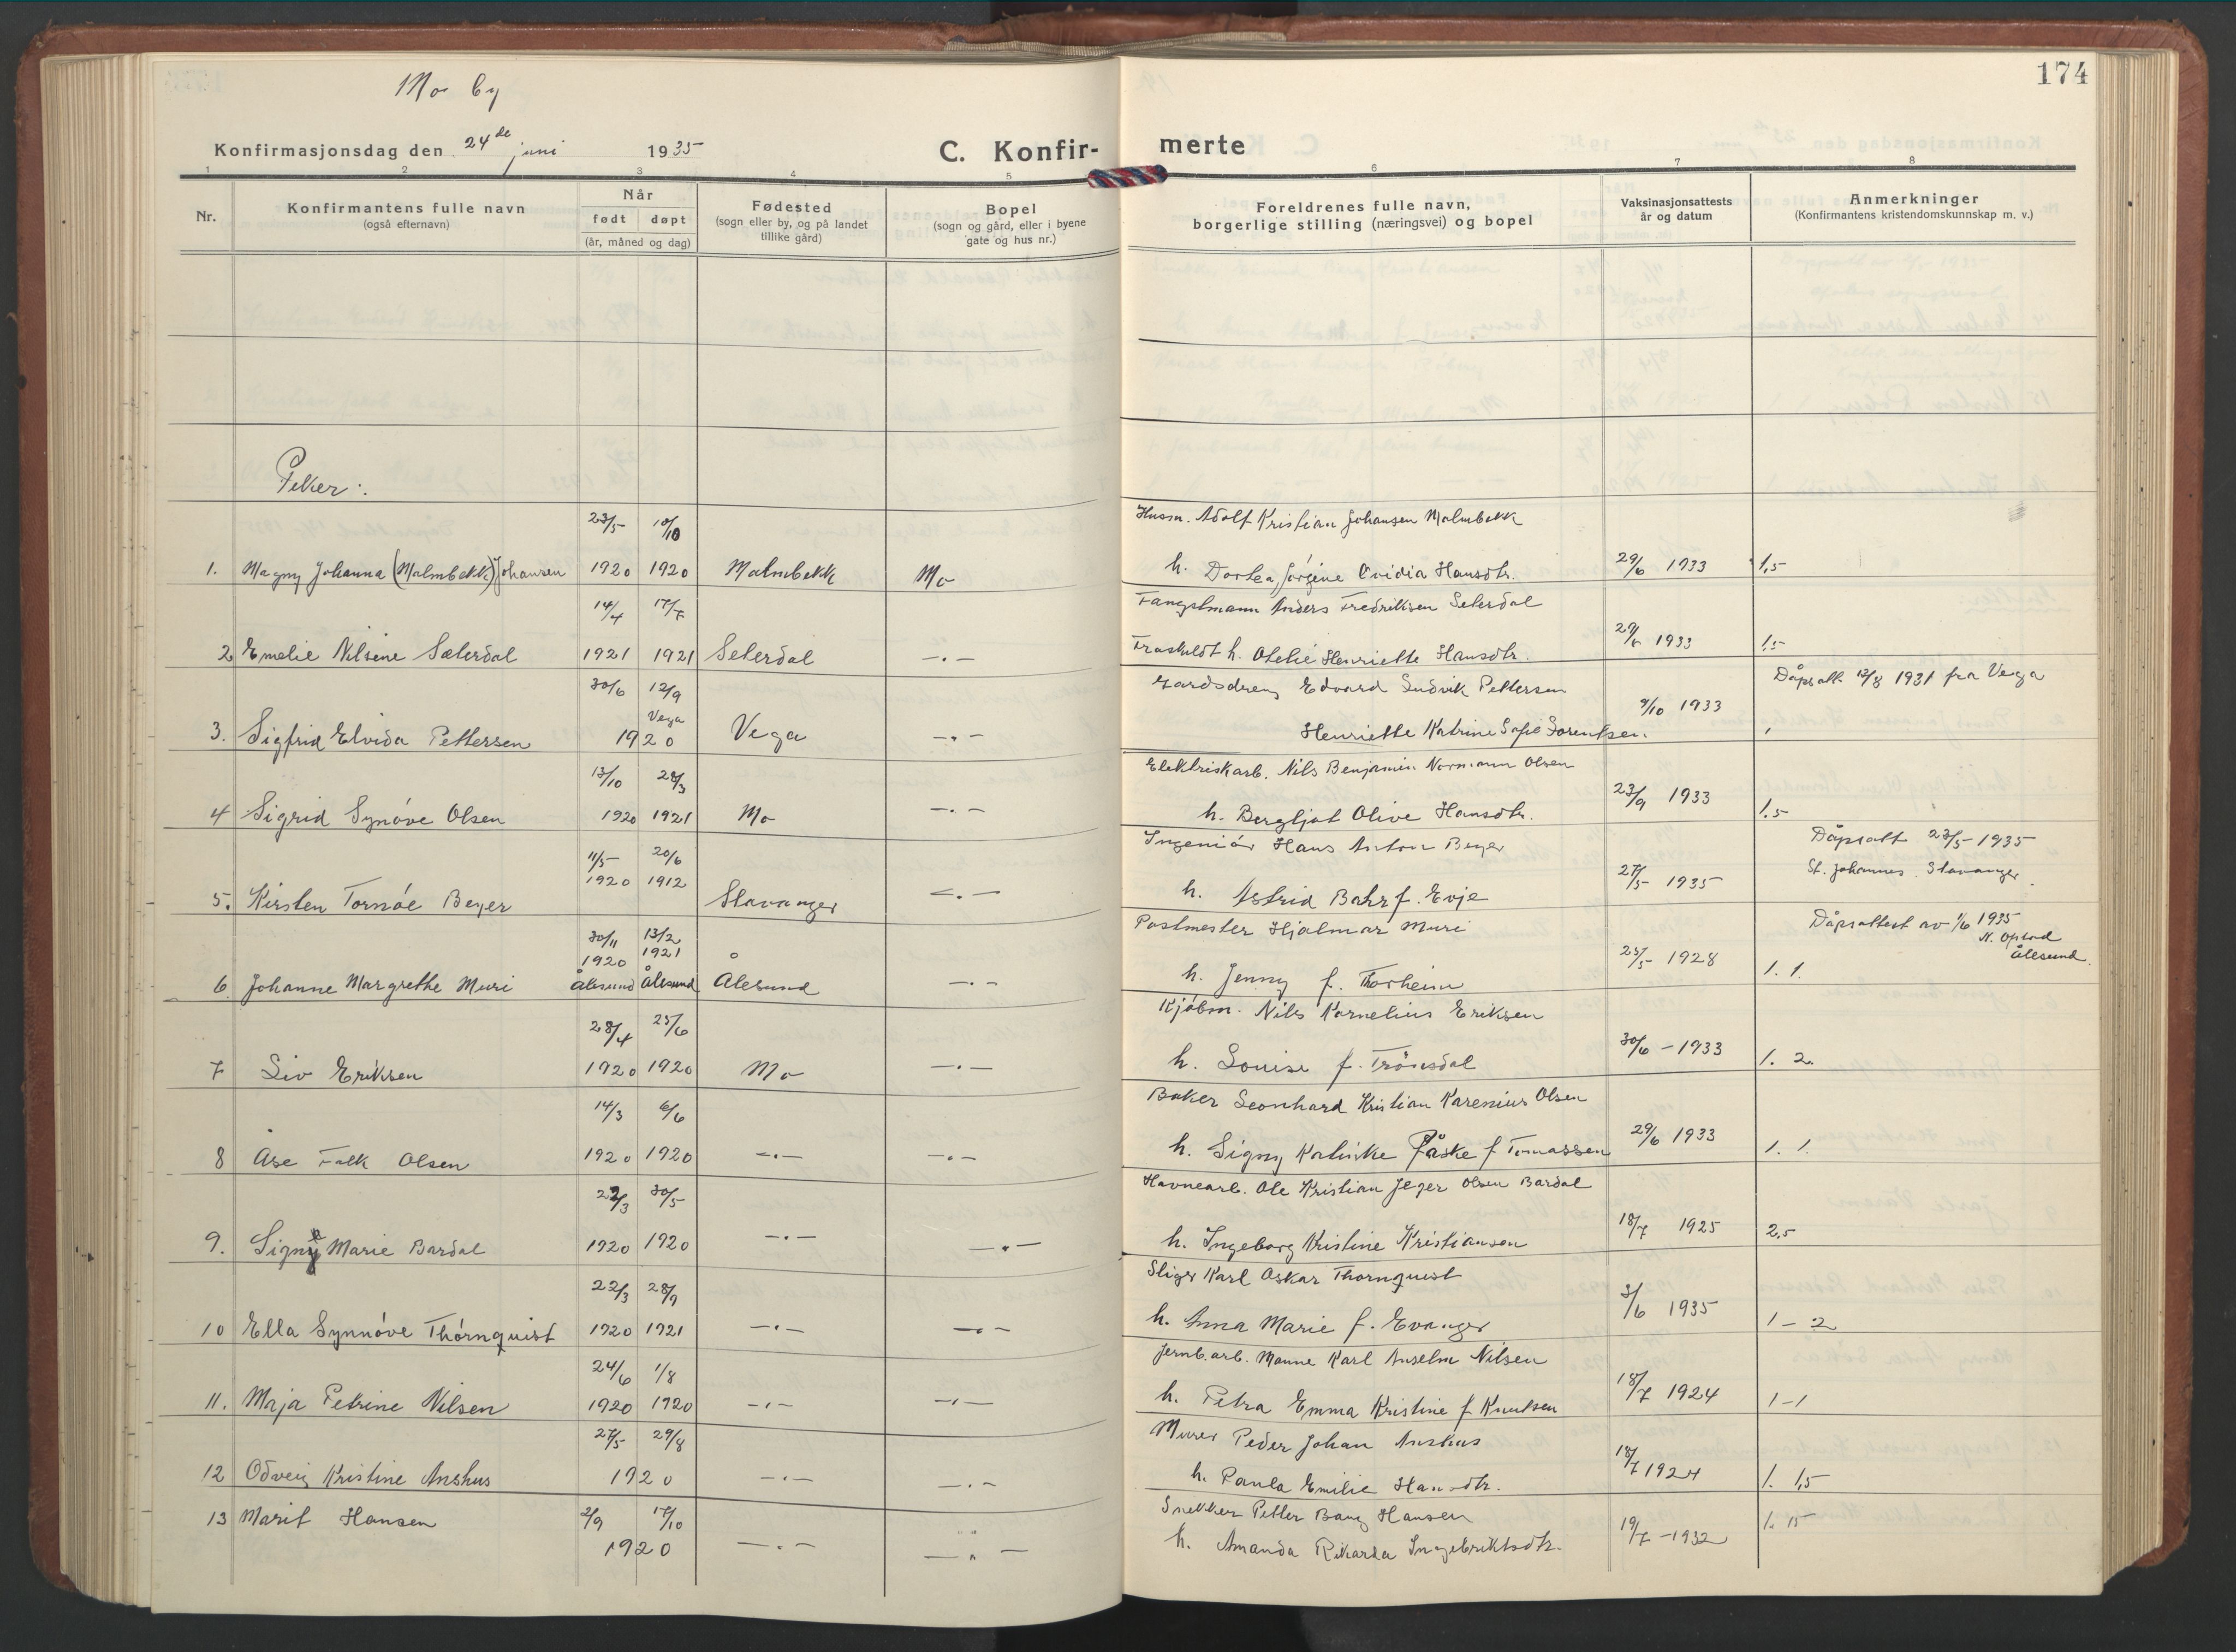 174
Mo by
Konfirmasjonsdag den 24de juni 1935
C. Konfir-
merte
1 2 3 4 5 6 7 8
Nr.
Konfirmantens fulle navn
(også efternavn)
Når
født døpt
(år, måned og dag)
Fødested
(sogn eller by, og på landet
tillike gård)
Bopel
(sogn og gård, eller i byene
gate og hus nr.)
Foreldrenes fulle navn,
borgerlige stilling (næringsvei) og bopel
Vaksinasjonsattests
år og datum
Anmerkninger
(Konfirmantens kristendomskunnskap m. v.)
Piker:
23/5 10/10 Husm. Adolf Kristian Johansen Malmbekk
1. Magny Johanna (Malmbekk) Johansen 1920 1920 Malmbekk Mo h. Dortea Jørgine Ovidia Hansdtr. 29/6 1933 1,5
14/4 17/7 Fangstmann Anders Fredriksen Seterdal
2 Emelie Nilsine Sæterdal 1921 1921 Seterdal —.— Fraskildt h. Otelie Henriette Hansdtr. 29/6 1933 1,5
30/6 12/9 Gardsdreng Edvard Ludvik Pettersen Dåpsatt. 12/8 1931 fra Vega
Vega
3. Sigfrid Elvida Pettersen 1920 Vega —.— Henriette Katrine Sofie Sorentsen. 9/10 1933
13/10 28/3 Elektriskarb. Nils Benjamin Normann Olsen
4 Sigrid Synøve Olsen 1920 1921 Mo —.— h. Bergljot Olive Hansdtr. 23/9 1933 1.5
11/5 20/6 Ingeniør Hans Anton Beyer Dåpsatt 23/5-1935
1920 1912 St. Johannes Stavanger.
5. Kirsten Tornøe Beyer Stavanger —.— h. Astrid Bahr f. Evje 27/5 1935
30/11 13/2 Postmester Hjalmar Muri Dåpsattest av 1/6 1935
1920 1921 Ålesund.
6. Johanne Margrethe Muri Ålesund Ålesund Ålesund —.— h. Jenny f. Thorheim 25/5 1928 1. 1.
28/4 25/6 Kjøbm. Nils Kornelius Eriksen
7 Liv Eriksen 1920 1920 Mo —.— h. Louise f. Trønsdal 30/6-1933 1. 2.
14/3 6/6 Baker Leonhard Kristian Karenius Olsen
8 Åse Falk Olsen 1920 1920 —.— —.— h. Signy Kalinke Påske f Tomassen 29/6 1933 1. 1.
22/3 30/5 Havnearb. Ole Kristian Jeger Olsen Bardal
9. Signe Marie Bardal 1920 1920 —.— —.— h. Ingeborg Kristine Kristiansen 18/7 1925 2,5
22/3 28/9 Stiger Karl Oskar Thornquist
10 Ella Synnøve Thørnquist 1920 1921 —.— —.— h. Anna Marie f. Evanger 3/6 1935 1-2
24/6 1/8 Jernb.arb. Manne Karl Anselm Nilsen
11. Maja Petrine Nilsen 1920 1920 —.— —.— h. Petra Emma Kristine f Knutsen 18/7 1924 1-1
27/5 29/8 Murer Peder Johan Anshus
12 Odveig Kristine Anshus 1920 —.— —.— h. Paula Emilie Hansdtr. 18/7 1924 1. 1,5
13 Marit Hansen 2/9 17/10 Snekker Petter Bang Hansen 1. 15
1920 —.— —.— h. Amanda Rikarda Ingebriktsdtr. 19/7-1932